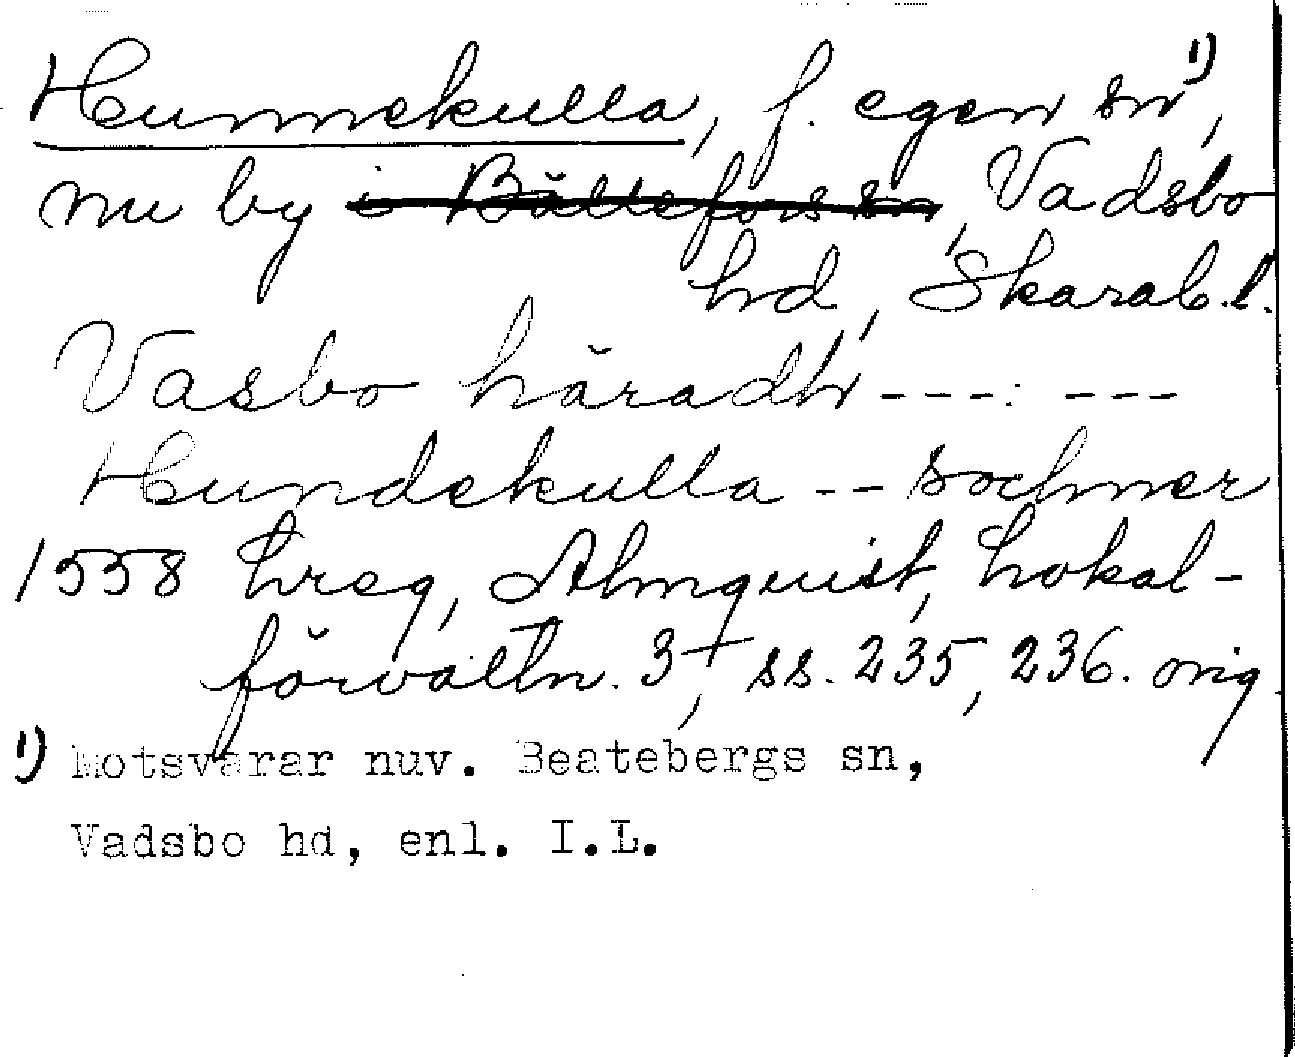 Hunnekulla, f. egen sn 1),
nu by i Bällefors sn, Vadsbo
hd, Skarab.l.
Vasbo häradh ---: ---
Hundekulla -- sochner
1558 hreg, Almquist, Lokal-
förvaltn. 3, ss. 235, 236. orig
1) Motsvarar nuv. Beatebergs sn,
Vadsbo hd, enl. I.L.